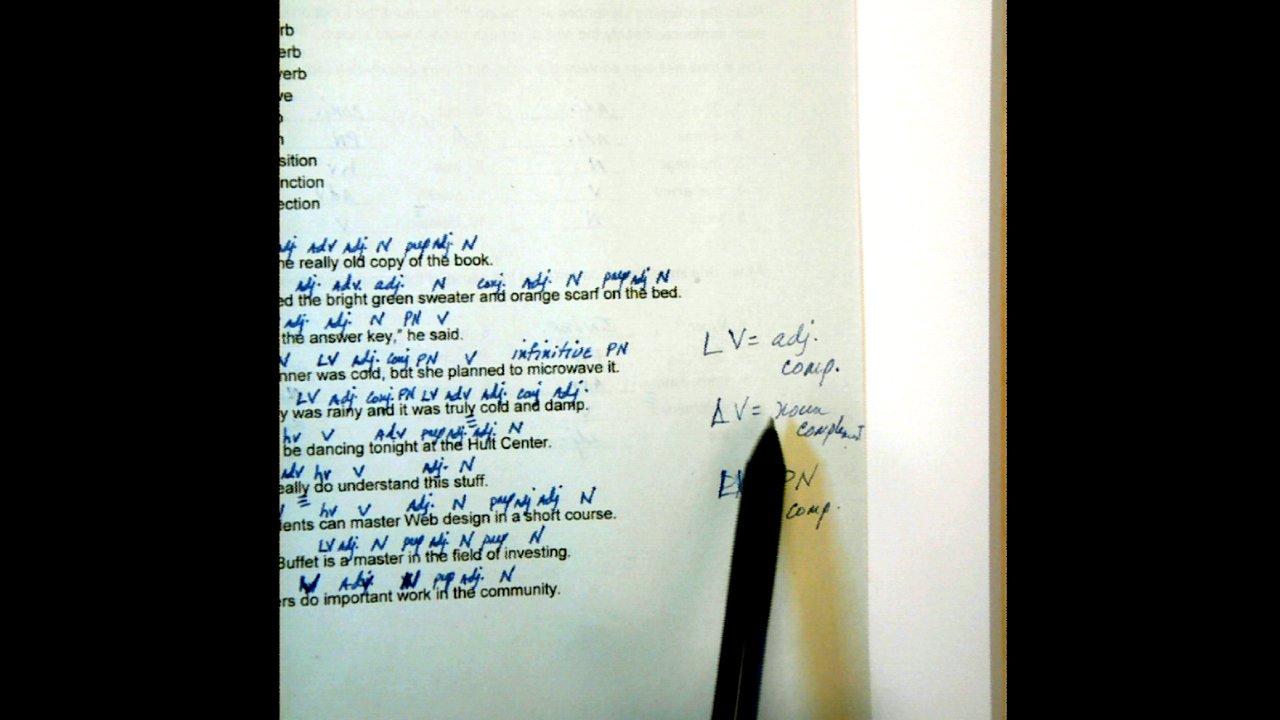 rb
erb
verb
ve
sition
nction
ection
adj Adv Adj. N prep Adj. N
he really old copy of the book.
adj. Adv. adj. N conj. Adj. N prep Adj N
ed the bright green sweater and orange scarf on the bed.
adj. adj. N PN V
the answer key," he said.
N LV Adj. conj PN V infinitive PN
nner was cold, but she planned to microwave it.
LV Adj conj. PN LV Adv Adj. conj Adj.
y was rainy and it was truly cold and damp.
hv V Adv prep Adj adj. N
be dancing tonight at the Hult Center.
Adv hv V Adj. N
eally do understand this stuff.
hv V Adj. N prep Adj Adj N
ents can master Web design in a short course.
LV Adj. N prep adj. N prep N
Buffet is a master in the field of investing.
Adj. N prep Adj. N
rs do important work in the community.
LV = adj.
comp.
LV = noun
complement
PN
comp.